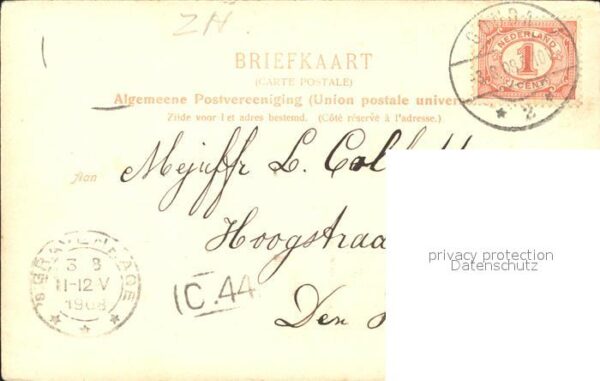 ZH
BRIEFKAART
(CARTE POSTALE)
Algemeene Postvereeniging (Union postale univer
Zijde voor het adres bestemd. (Côté réservé à l'adresse.)
NEDERLAND
1
CENT
GOUDA
2
Aan Mejuffr L.
Hoogstraa
Den
'S GRAVENHAGE
3 8
11-12 V
1908
C.44
privacy protection
Datenschutz